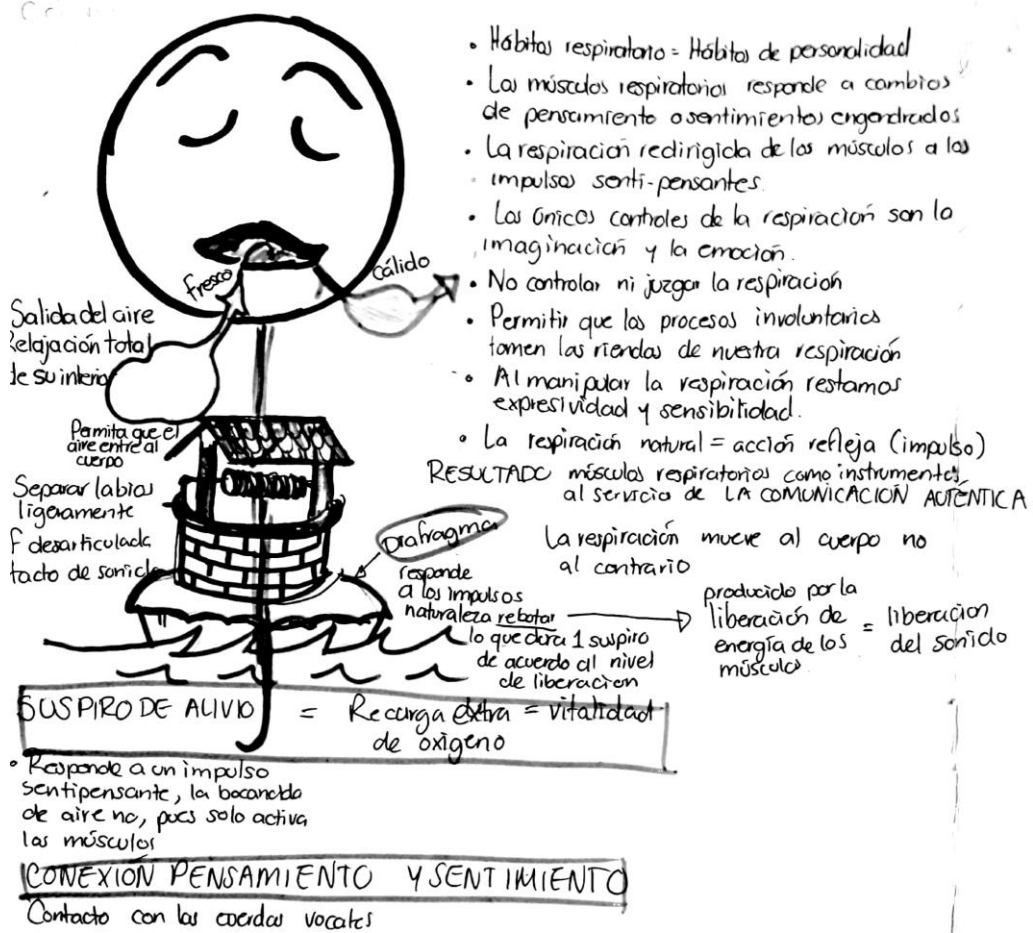 • Hábitos respiratorio = Hábitos de personalidad
• Los músculos respiratorios responde a cambios
de pensamiento o sentimientos engendrados
• La respiración redirigida de los músculos a los
impulsos senti-pensantes.
• Los únicos controles de la respiración son la
imaginación y la emoción.
• No controlar ni juzgar la respiración
• Permitir que los procesos involuntarios
tomen las riendas de nuestra respiración
• Al manipular la respiración restamos
expresividad y sensibilidad.
• La respiración natural = acción refleja (impulso)
RESULTADO músculos respiratorios como instrumentos
al servicio de LA COMUNICACIÓN AUTÉNTICA
La respiración mueve al cuerpo no
al contrario
fresco
cálido
Salida del aire
Relajación total
de su interio
Permita que el
aire entre al
cuerpo
Separar labios
ligeramente
F desarticulada
tacto de sonido
Diafragma
responde
a los impulsos
naturaleza rebotar
lo que dura 1 suspiro
de acuerdo al nivel
de liberación
producido por la
liberación de
energía de los
músculos
= liberación
del sonido
SUSPIRO DE ALIVIO = Recarga extra = vitalidad
de oxigeno
• Responde a un impulso
sentipensante, la bocanada
de aire no, pues solo activa
los músculos
CONEXIÓN PENSAMIENTO Y SENTIMIENTO
Contacto con las cuerdas vocales